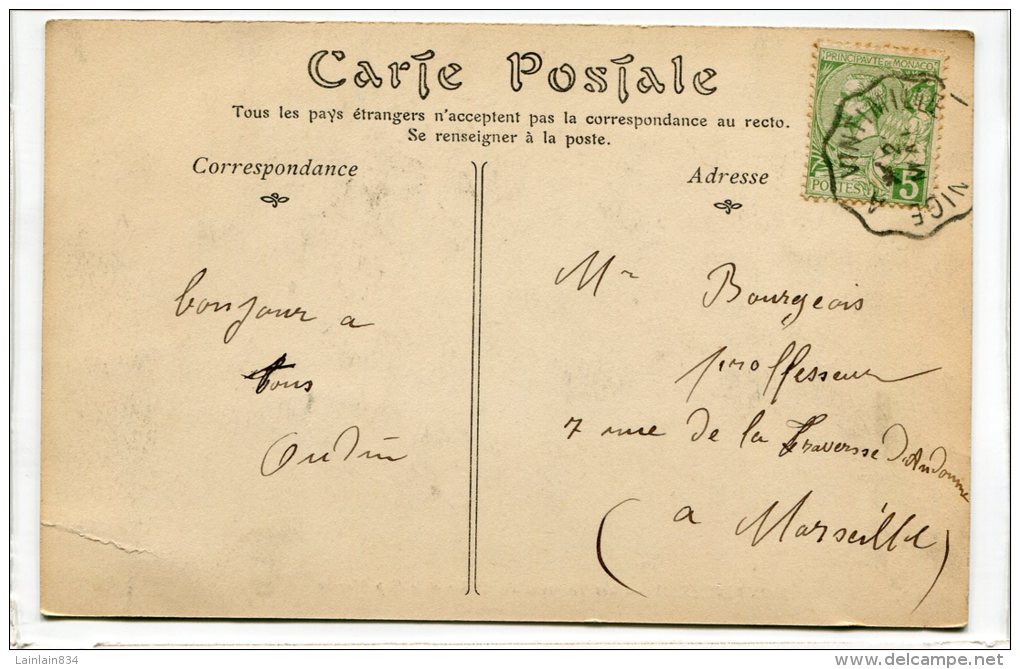 Carte Postale
Tous les pays étrangers n'acceptent pas la correspondance au recto.
Se renseigner à la poste.
Correspondance
Adresse
PRINCIPAUTÉ DE MONACO
POSTES
5
VINTIMILLE
NICE
bonjour a
tous
Oudin
Mr Bourgeois
proffesseur
7 rue de la Traversse D'Andoume
(a Marseille)
Lainlain834
www.delcampe.net